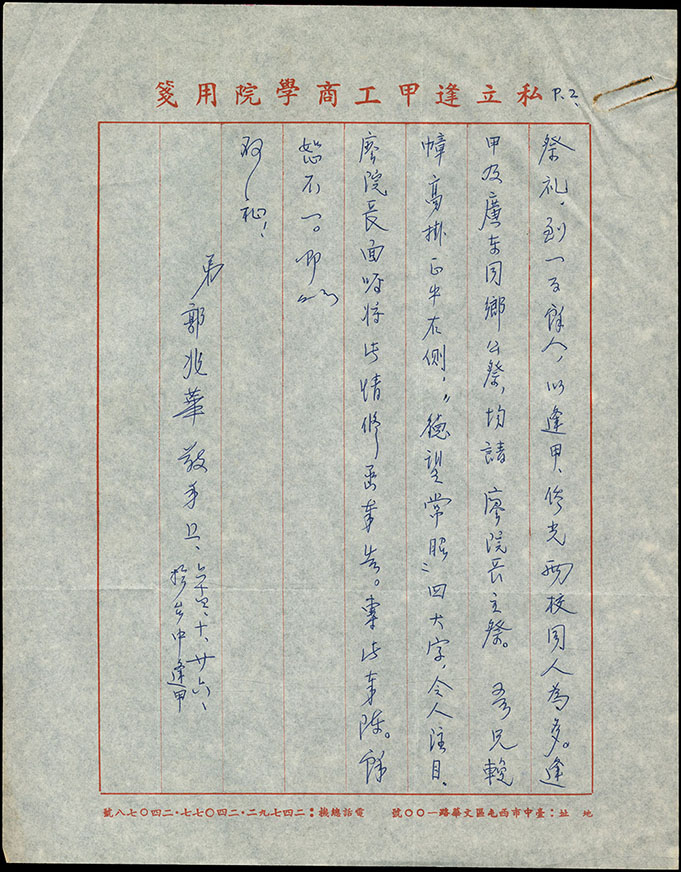 私立逢甲工商學院用箋
P.2.
祭礼，到一百餘人，以逢甲、僑光兩校同人為多。逢
甲及廣东同鄉公祭，均請 廖院長主祭。 吾兄輓
幛高掛正中右側，〝德望常昭〞四大字，令人注目，
廖院長面呀将此情修函奉告。專此奉陳。餘
恕不一。即以
敬礼！
弟郭兆華敬手上、六十四、十、廿六、
於台中逢甲
地址：臺中市西屯區文華路一〇〇號 電話總機：二四七九二・二四〇七七・二四〇七八號